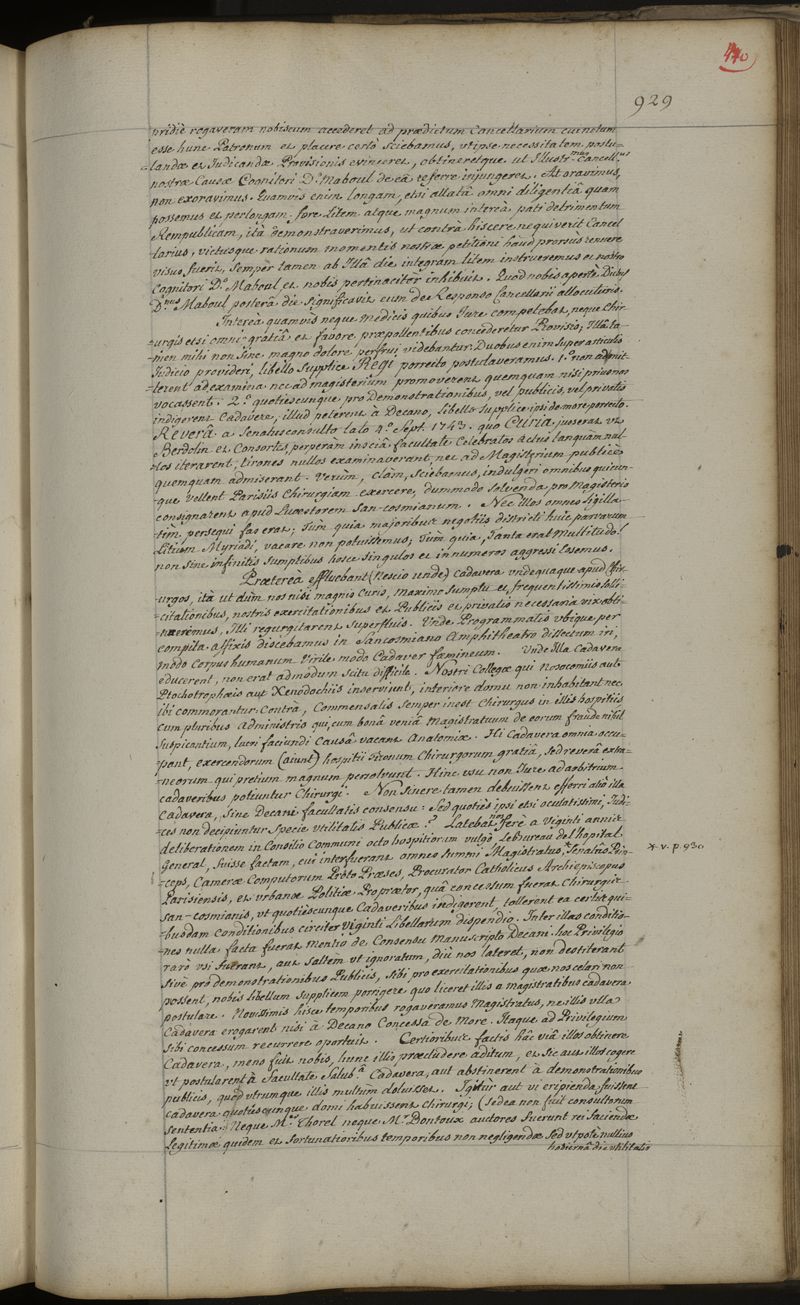 440
929
pridiè rogaveram nobiscum accederet ad prædictum Cancellarium cui notum
esse hunc Patronum et placere certò Sciebamus, ut ipse necessitatem postu-
=landæ et Iudicandæ Provisionis evinceret, obtineretque ut Illustr.mus Cancell.ius
nostræ Causæ Cognitori D.o Maboul de eâ referre injungeret. At oravimus,
non exoravimus. Quamvis enim longam, etsi allatâ omni diligentiâ quam
possemus et perlongam fore Litem atque magnum intereà pati detrimentum
Rempublicam, ità demonstraverimus, ut contrà hiscere nequiverit Cancel
larius, victusque rationum momentis nostræ petitioni haud prorsùs renuere
visus fuerit, Semper tamen ab Illâ die integram litem instrueremus et nostro
Cognitori D.o Maboul et nobis pertinaciter inhibuit. Quod nobis apertè
D.nus Maboul posterâ die Significavit cum de Responso Cancellarii allocuturis.
Intereà quamvis neque medicis quibus Jure competebat, neque Chir-
-urgis etsi omni gratiâ et favore præpollentibus concederetur Provisio; Illâ ta-
-men mihi non Sine magno dolore perfrui videbantur. Duobus enim Super articulis
Iudicio provideri, libello Supplice Regi porrecto postulaveramus. 1.o non admit-
-terent ad examina nec ad magisterium promoverent quemquam nisi prius nos
vocassent. 2.o quotiescunque pro Demonstrationibus, vel publicis, vel privatis
indigerent Cadavere, illud peterent à Decano, libello Supplice ipsi de more porrecto.
Reverâ a Senatusconsulto lato 4.o Sept. 1743. quo Curia jusserat ut
Berdolin et Consortes, perperàm insciâ facultate Celebratos actus tanquam nul-
-los iterarent, tirones nullos examinaverant nec ad Magisterium publicè
quemquam admiserant. Verùm, clàm, Sciebamus, indulgeri omnibus quicun-
-que vellent Parisiis Chirurgiam exercere, dummodo Solvenda pro Magisterio
consignarent apud Quæstorem San-cosmianum. Nec illos omnes Sigilla-
tim persequi fas erat; Tum quia majoribus negotiis districti huic parvarum
Litium Myriadi, vacare non potuissemus; Tum quia, Tanta erat Multitudo!
non Sine infinitis Sumptibus hosce Singulos et innumeros aggressi essemus.
Prætereà effluebant (Nescio undè) Cadavera undequaque apud Chir-
-urgos, ità ut dùm nos nisi magnis Curis, Maximo Sumptu et frequentissimis Solli-
-citationibus, nostris exercitationibus et Publicis et privatis necessaria vix obti-
-neremus, Illi regurgitarent Superfluis. Unde Programmatis ubique per
compita affixis discebamus in Sancosmiano Amphitheatro dissectum iri,
modo Corpus humanum Virile modo Cadaver fœmineum. Unde Illa Cadavera
educerent, non erat admodum Scitu difficile. Nostri Collegæ qui Nosocomiis aut
Ptochotrophæis aut Xenodochiis inserviunt, interiore domu non inhabitant nec
ibi commorantur. Contrà, Commensalis Semper inest Chirurgus in illis hospitiis
cum pluribus administris qui, cum bonâ veniâ Magistratuum de eorum fraude nihil
Suspicantium, lucri faciundi Causâ vacant Anatomiæ. Hi Cadavera omnia occu-
-pant, exercendorum (aiunt) hospitii tironum Chirurgorum gratiâ, Sed reverâ extra-
-neorum qui pretium magnum persolvunt. Hinc usu non Jure ad arbitrium
cadaveribus potiuntur Chirurgi. Non Sinere tamen debuissent efferri aliò illa
Cadavera, Sine Decani facultatis consensu. Sed quoties ipsi etsi oculatissimi Iudi-
-ces non decipiuntur Specie utilitatis Publicæ? Latebat nos ferè a Viginti annis
deliberationem in Consilio Communi octo hospitiorum vulgò Le Bureau de l'hopital
General, fuisse factam, cui interfuerant omnes Summi Magistratus,* Senatûs Prin-
-ceps, Cameræ Computorum Proto Præses, Procurator Catholicus Archiepiscopus
Parisiensis, et urbanæ Politiæ Proprætor, quâ concessum fuerat Chirurgis
San-cosmianis, ut quotiescunque Cadaveribus indigerent, tollerent ea certis qui-
-busdam Conditionibus circiter Viginti Libellarum dispendio. Inter illas conditio-
-nes nulla facta fuerat mentio de Consensu Manuscripto Decani. hoc Privilegio
rarò usi fuerant, aut Saltem ut ignoratum, diù nos lateret, non destiterant
Sivè pro demonstrationibus Publicis, Sibi pro exercitationibus quæ nos celari non
possent, nobis libellum Supplicem porrigere quo liceret illis a magistratibus cadavera
postulare. Novissimis hisce temporibus rogaveramus Magistratus, ne illis ulla
Cadavera erogarent nisi à Decano Concessa de More. Itaque ad Privilegium
Sibi concessum recurrere oportuit. Certioribus factis hâc viâ illos obtinere
Cadavera, mens fuit nobis, hunc illis præcludere aditum, et Sic aut illos cogere
ut postularent à Facultate Salub.a Cadavera, aut abstinerent à demonstrationibus
publicis, quod utrumque illis multùm doluisset. Igitur aut vi eripienda fuissent
cadavera quotiescunque domi habuissent Chirurgi; (Sed ea non fuit consultorum
Sententia. Neque M.r Thorel neque M.r Dontoux auctores fuerunt rei Faciendæ
Legitimæ quidem et fortunatioribus temporibus non negligendæ Sed ut potè nullius
hodiernâ die utilitatis
* v. p. 930